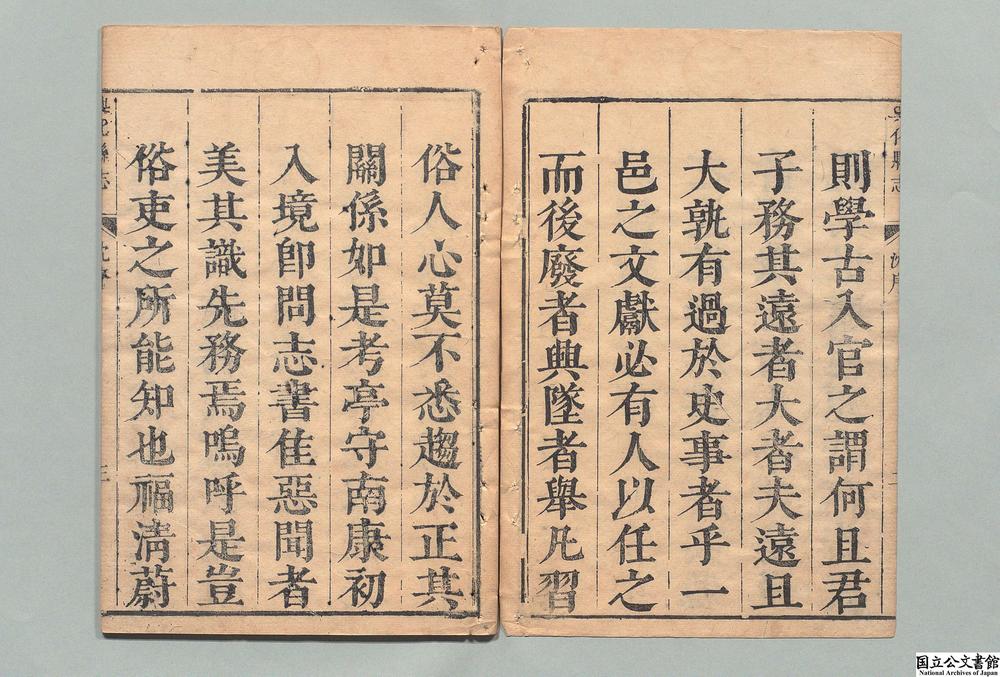 則學古入官之謂何且君
子務其遠者大者夫遠且
大孰有過於史事者乎一
邑之文獻必有人以任之
而後廢者興墜者舉凡習
俗人心莫不悉趨於正其
關係如是考亭守南康初
入境卽問志書隹惡聞者
美其識先務焉嗚呼是豈
俗吏之所能知也福淸蔚
国立公文書館
National Archives of Japan